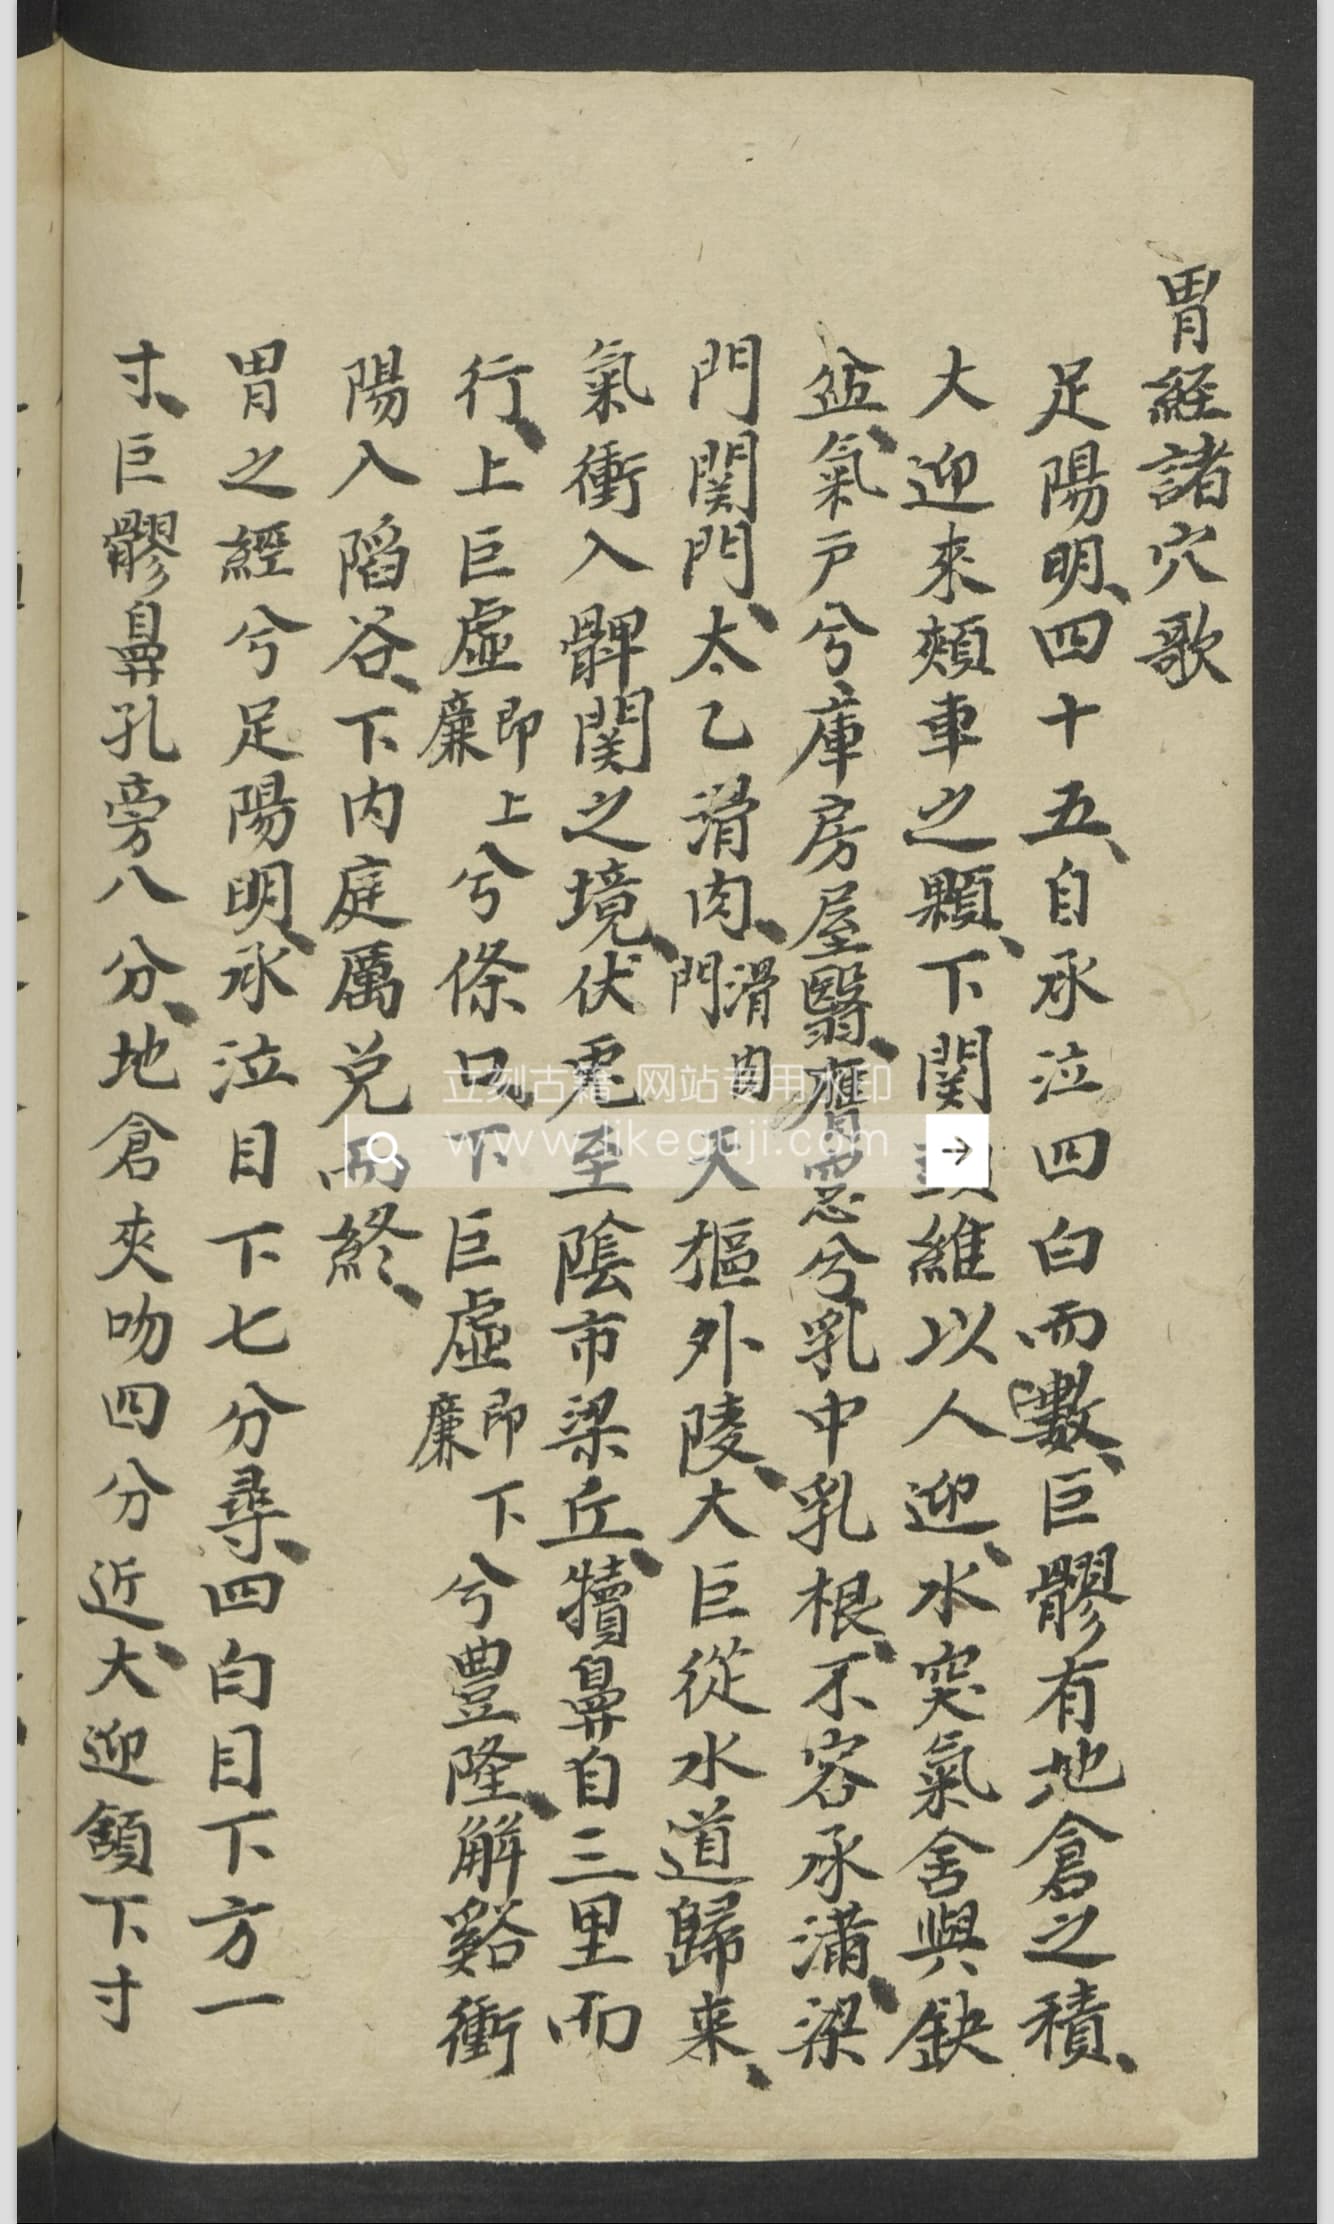 胃経諸穴歌
足陽明、四十五、自承泣四白而數、巨髎有地倉之積、
大迎来頰車之顆、下関頭維以人迎、水突氣舍與缺
盆、氣戸兮庫房屋翳、膺窓兮乳中乳根、不容承滿、梁
門関門、太乙滑肉、滑肉門天樞外陵、大巨從水道歸来、
氣衝入髀関之境、伏兎至陰市梁丘、犢鼻自三里而
行、上巨虛即上廉兮條口下巨虛即下廉兮豊隆、解谿衝
陽入陷谷、下内庭厲兌而終、
胃之經兮足陽明、承泣目下七分尋、四白目下方一
寸、巨髎鼻孔旁八分、地倉夾吻四分近、大迎頷下寸
立刻古籍 网站专用水印
www.likeguji.com